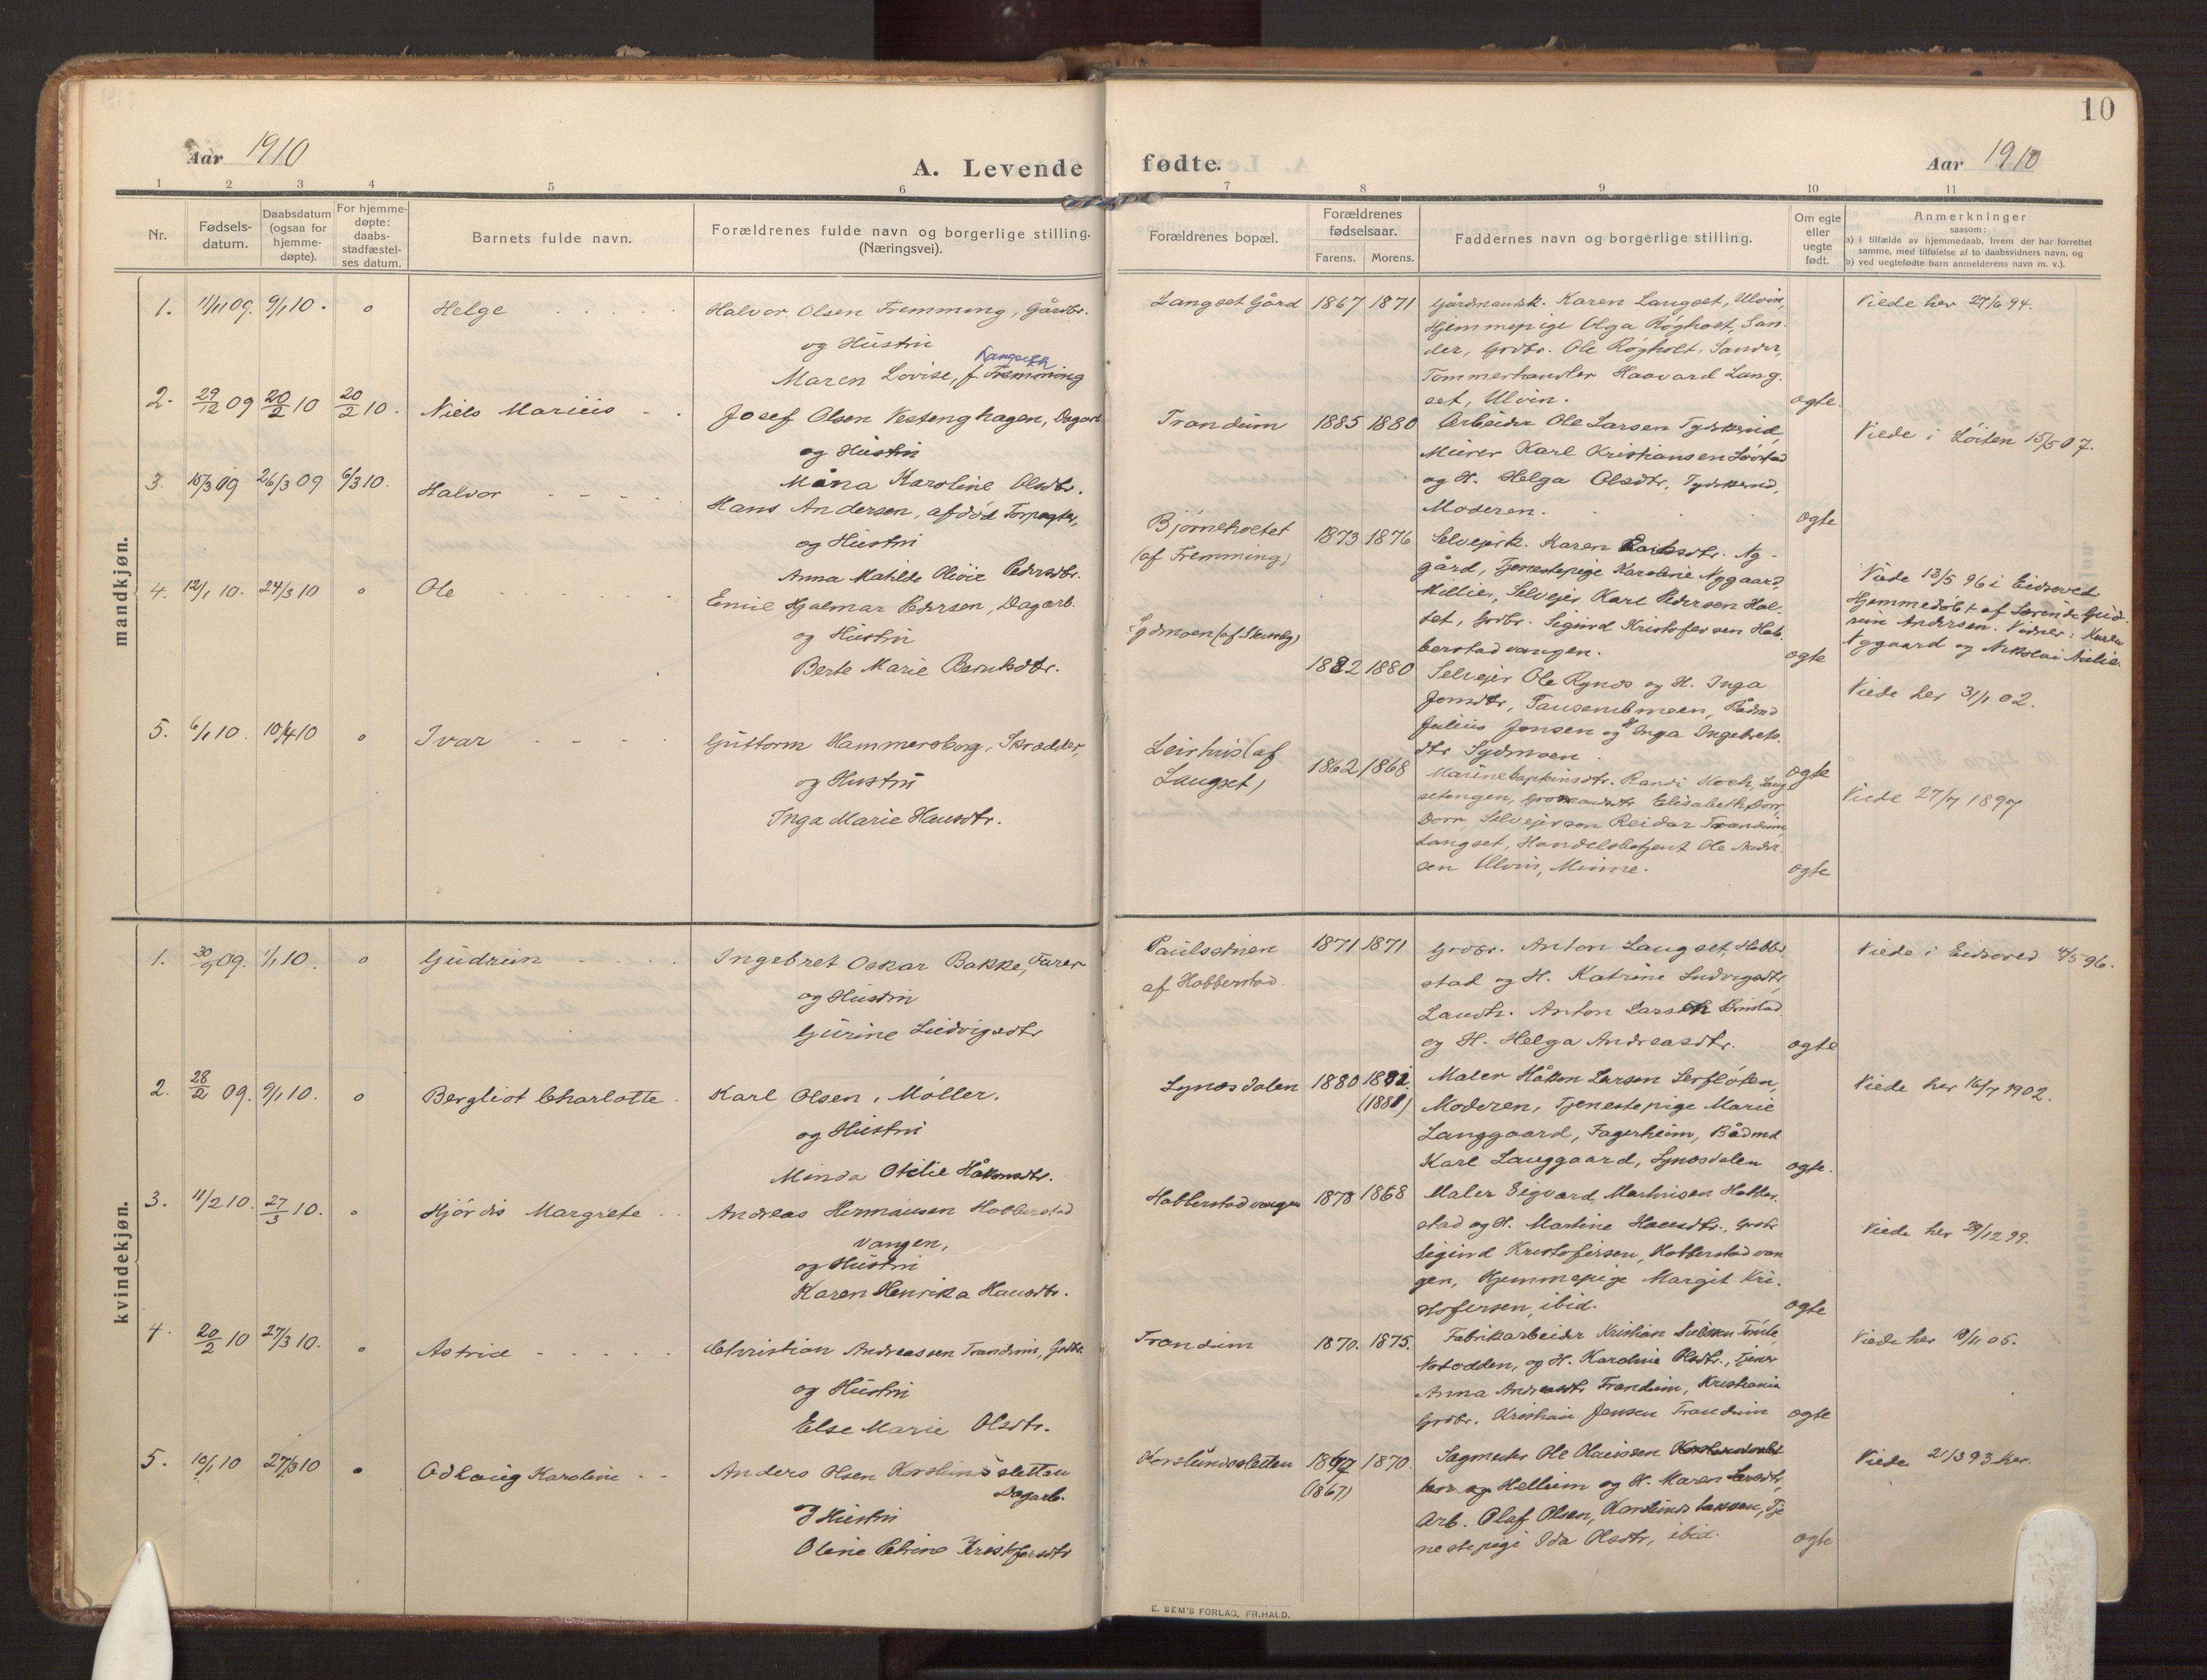 10
Aar 1910
A. Levende fødte.
Aar 1910
1 2 3 4 5 6 7 8 9 10 11
Nr.
Fødsels-
datum.
Daabsdatum
(ogsaa for
hjemme-
døpte).
For hjemme-
døpte:
daabs-
stadfæstel-
ses datum.
Barnets fulde navn.
Forældrenes fulde navn og borgerlige stilling.
(Næringsvei).
Forældrenes bopæl.
Forældrenes
fødselsaar.
Farens. Morens.
Faddernes navn og borgerlige stilling.
Om egte
eller
uegte
født.
Anmerkninger
saasom:
a) i tilfælde av hjemmedaab, hvem der har forrettet
samme, med tilføielse af to daabsvidners navn, og
b) ved uegtefødte barn anmelderens navn m. v.).
mandkjøn.
1. 11/11 09. 9/1 10. o Helge
Halvor Olsen Fremming, Gårdbr.
og Hustru
Langseth
Maren Lovise, f. Fremming
Langset Gård 1867 1871
Gårdmandsk. Karen Langset, Ulvin,
Hjemmepige Olga Røgholt, San-
der, Grdbr. Ole Røgholt, Sander,
Tømmerhandler Haavard Lang-
set, Ulvin.
ægte.
Viede her 27/6 94.
2. 29/12 09 20/2 10 20/2 10. Niels Marius
Josef Olsen Vestenghagen, Dagarb
og Hustru
Måna Karoline Olsdtr.
Trandum 1885 1880
Arbeider Ole Larsen Tydskerud,
Murer Karl Kristiansen Løvstad
og H. Helga Olsdtr, Tydskerud,
Moderen.
ægte
Viede i Løiten 15/5 07.
3. 15/3 09 26/3 09 6/3 10. Halvor
Hans Andersen, afdød Torpagter,
og Hustru
Anna Matilde Olivie Pedersdtr.
Bjørneholtet
(af Fremming)
1873 1876
Selvejerk. Karen Larsdtr. Ny-
gård, Tjenestepige Karoline Nygaard,
Selvejer Karl Pedersen Hol-
tet, Grdbr. Sigurd Kristofersen Hob-
berstadvangen.
ægte
Viede 13/5 96 i Eidsvold
Hjemmedøbt af Lærerinde Gud-
run Andersen. Vidner: Karen
Nygaard og Nikolai
4. 12/1 10. 24/3 10 o Ole
Emil Hjalmar Pedersen, Dagarb.
og Hustru
Berte Marie Berntsdtr.
Sydmoen
1882 1880
Selvejer Ole Rynæs og H. Inga
Jonsdtr,
Julius Jensen og H. Inga Ingebrets-
dtr Sydmoen.
ægte
Viede her 31/1 02.
5. 6/1 10. 10/4 10 o Ivar
Guttorm Hammersborg, Skrædder,
og Hustru
Inga Marie Hansdtr.
Leirhus (af
Langset)
1862 1868
Marinekapteinsdtr. Randi Koch, Lang-
setengen, Elisabeth Dorr,
Dorr, Selvejersøn Reidar Trandum,
Langset, Handelsbetjent Ole Peder-
sen Ulvin, Minne.
ægte
Viede 27/7 1897
kvindekjøn.
1. 30/9 09. 1/1 10. o Gudrun
Ingebret Oskar Bakke, Farer
og Hustru
Gurine Ludvigsdtr
Paulsstuen
af Hobberstad.
1871 1871
Grdbr. Anton Langset, Hobber-
stad og H. Katrine Ludvigsdtr,
Landh. Anton Larsen
og H. Helga Andreasdtr.
ægte
Viede i Eidsvold 4/5 96.
2. 28/2 09. 9/1 10. o Bergliot Charlotte
Karl Olsen, Møller.
og Hustru
Minda Otilie Håkonsdtr.
Lynæsdalen 1880 1881.
(1881)
Maler Håkon Larsen Lerfloten,
Moderen, Tjenestepige Marie
Langgaard, Fagerheim, Bådmd
Karl Langgaard, Lynæsdalen
ægte.
Viede her 16/7 1902.
3. 11/2 10. 27/3 10. o Hjördis Margrete
Andreas Hermansen Hobberstad
vangen,
og Hustru
Karen Henrika Hansdtr.
Hobberstadvangen 1878 1868
Maler Sigvard Martinsen Hobber-
stad og H. Martine Hansdtr., Grdbr
Sigurd Kristofersen, Hobberstadvan
gen, Hjemmepige Margit Kri-
stofersen, ibid.
ægte
Viede her 29/12 99.
4. 20/2 10 27/3 10. o Astrid
Christian Andreassen Trandum, Grdbr.
og Hustru
Else Marie Olsdtr.
Trandum 1870. 1875.
Fabrikarbeider Kristian
Notodden, og H. Karoline Olsdtr.,
Anna Andreasdtr Trandum, Kristiania
Grdbr. Kristian Jensen Trandum
ægte
Viede her 18/11 05.
5. 10/1 10 27/3 10 o Odlaug Karoline
Anders Olsen Korslundsletten
Dagarb.
og Hustru
Oline Petrine Kristofersdtr
Korslundsletten 1867 1870.
(1867)
Sagmester Ole Olaussen
Hellum og H. Maren Larsdtr,
Arb. Olaf Olsen, Korslundsbakken, Tje
nestepige Ida Olsdtr, ibid.
ægte
Viede 21/3 93 her.
E. SEM'S FORLAG, FR.HALD.